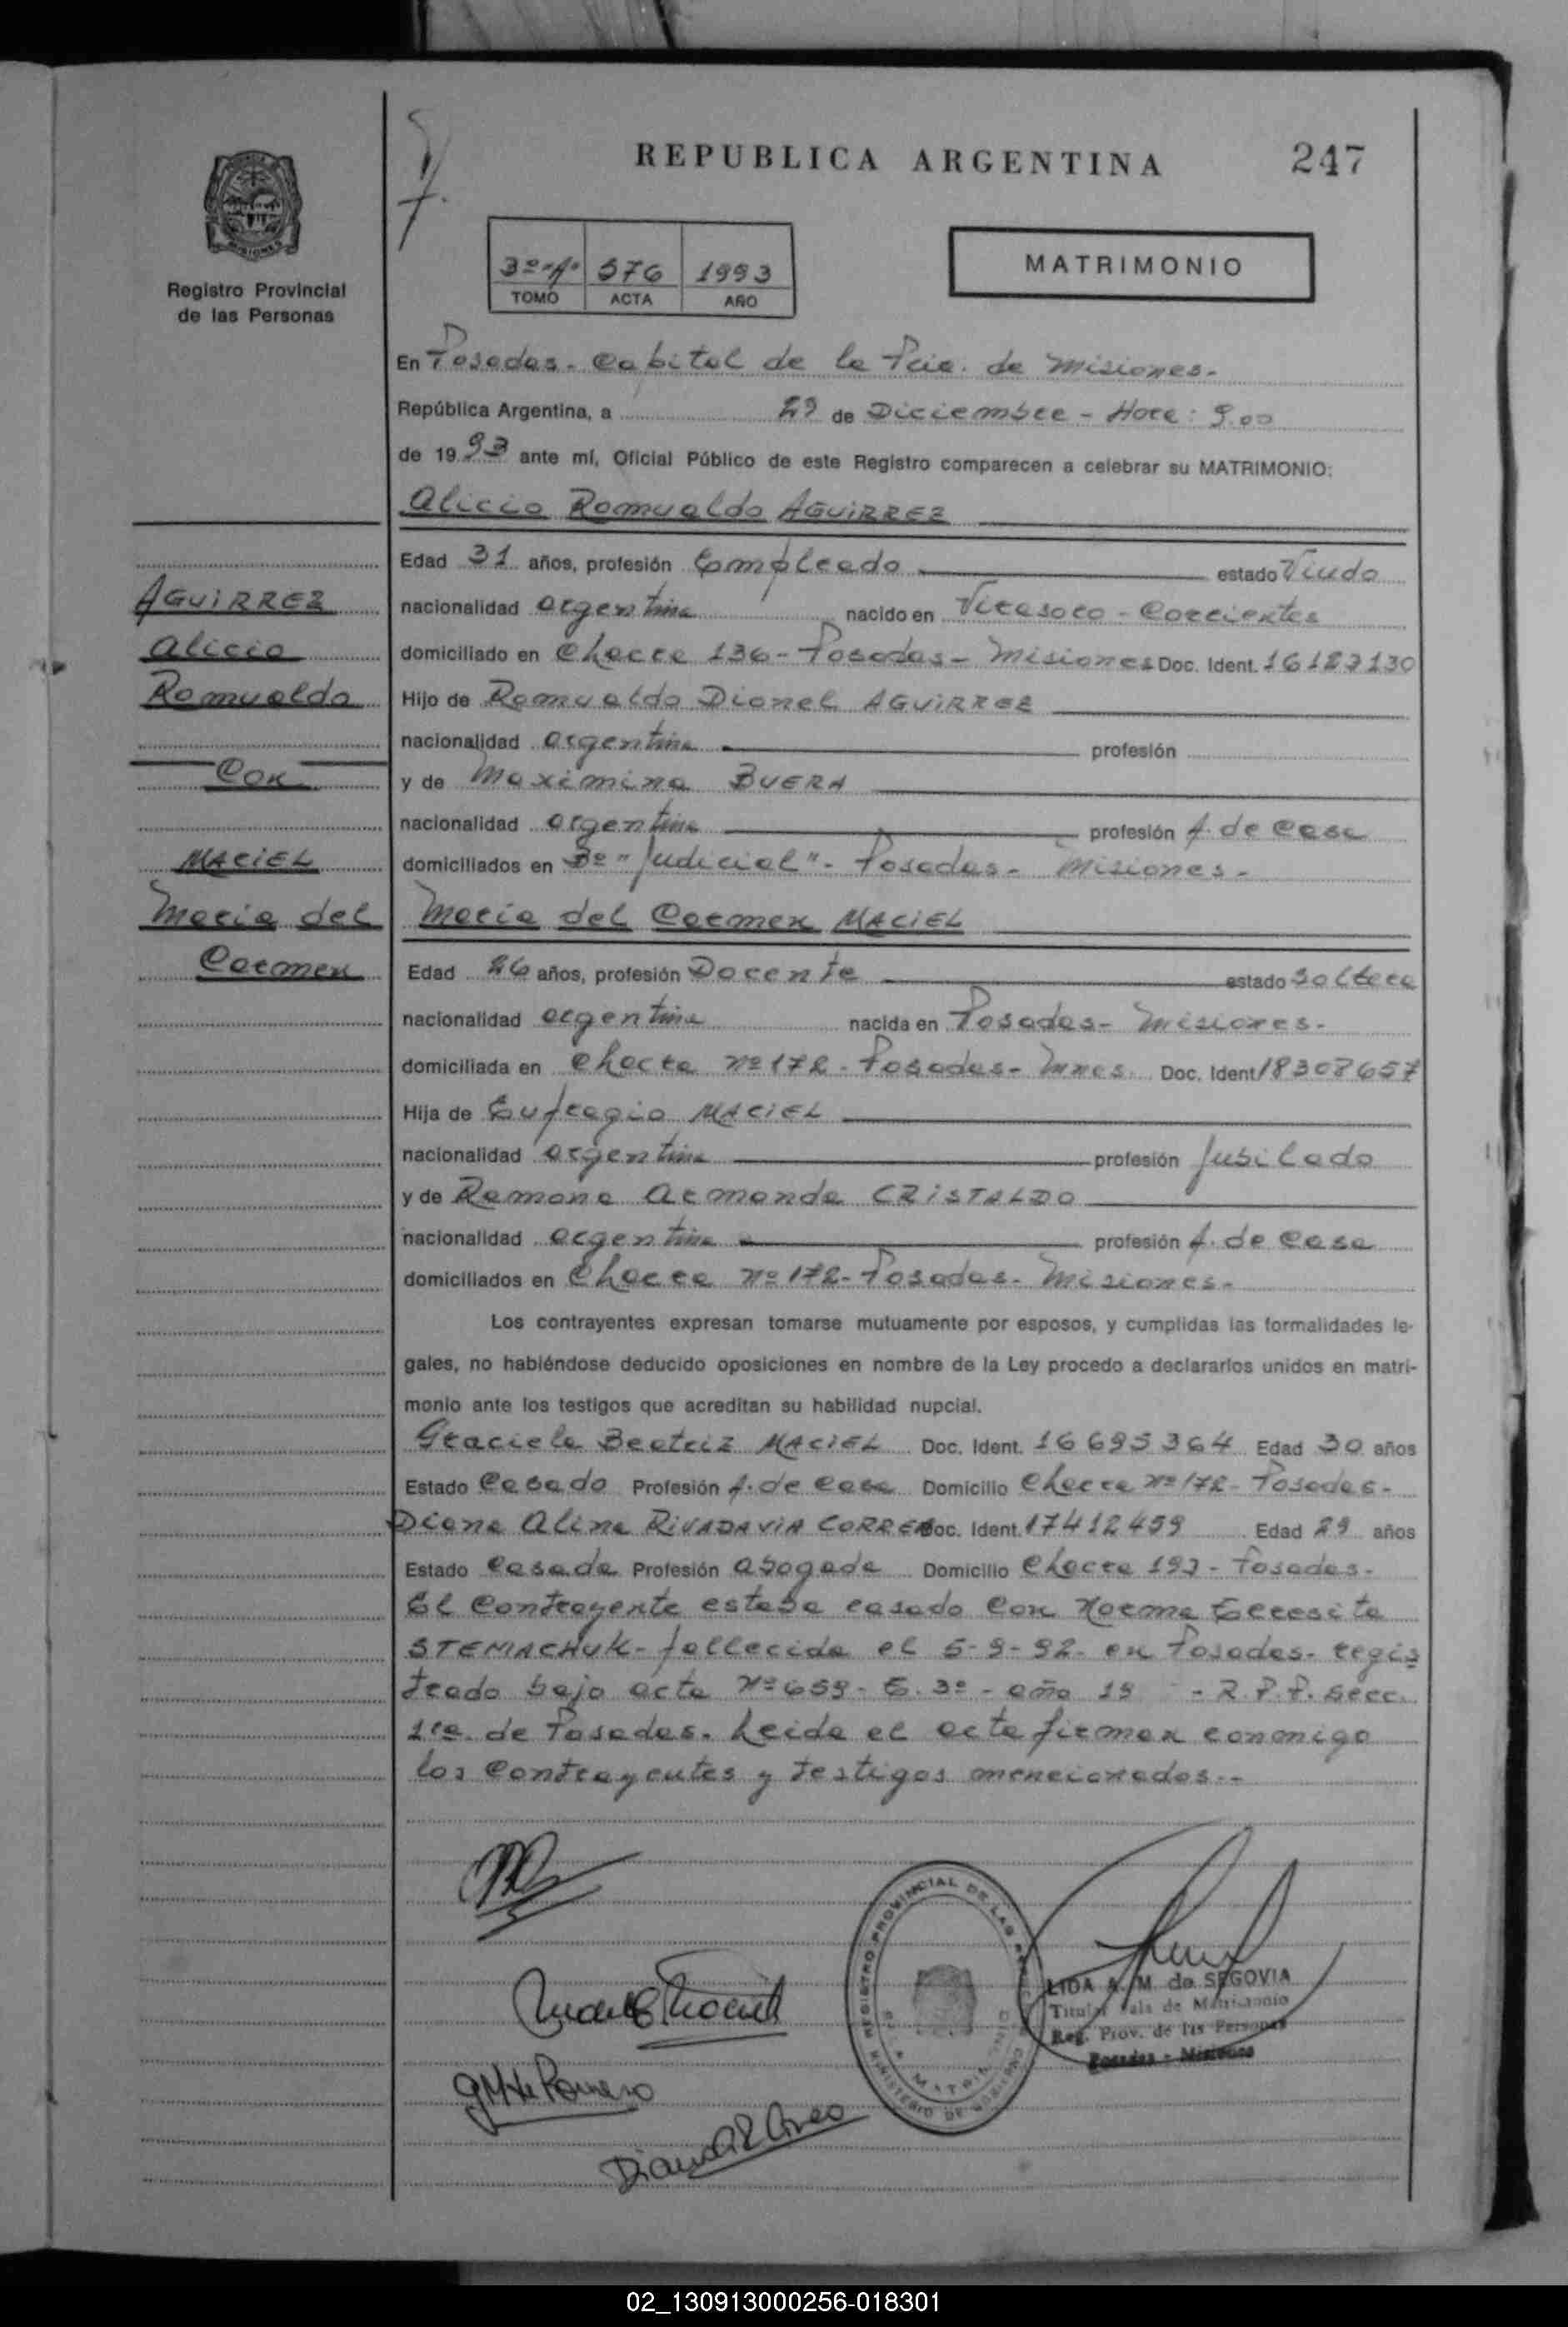 REPUBLICA ARGENTINA
247
Registro Provincial
de las Personas
3º "A" 576 1993
TOMO ACTA AÑO
MATRIMONIO
En Posadas - Capital de la Pcia. de Misiones.-
República Argentina, a 29 de Diciembre - Hora: 9.00
de 1993 ante mí, Oficial Público de este Registro comparecen a celebrar su MATRIMONIO:
Alicio Romualdo AGUIRREZ
Edad 31 años, profesión Empleado estado Viudo
nacionalidad argentina nacido en Virasoro - Corrientes
domiciliado en Chacra 136 - Posadas - Misiones Doc. Ident. 16183130
Hijo de Romualdo Dionel AGUIRREZ
nacionalidad argentina profesión
y de Maximina BUERA
nacionalidad argentina profesión A. de Casa
domiciliados en Bº "Judicial" - Posadas - Misiones -
María del Carmen MACIEL
Edad 26 años, profesión Docente estado soltera
nacionalidad argentina nacida en Posadas - Misiones -
domiciliada en Chacra nº 172 - Posadas - Mnes. Doc. Ident 18308657
Hija de Eufragio MACIEL
nacionalidad argentina profesión Jubilado
y de Ramona Armanda CRISTALDO
nacionalidad argentina profesión A. de Casa
domiciliados en Chacra nº 172 - Posadas - Misiones -
Los contrayentes expresan tomarse mutuamente por esposos, y cumplidas las formalidades le-
gales, no habiéndose deducido oposiciones en nombre de la Ley procedo a declararlos unidos en matri-
monio ante los testigos que acreditan su habilidad nupcial.
Graciela Beatriz MACIEL Doc. Ident. 16695364 Edad 30 años
Estado Casado Profesión A. de Casa Domicilio Chacra nº 172 - Posadas -
Diana Alina RIVADAVIA CORREA Doc. Ident. 17412459 Edad 29 años
Estado Casada Profesión abogada Domicilio Chacra 193 - Posadas -
El Contrayente estaba casado con Norma Teresita
STEMACHUK - fallecida el 5-9-92 - en Posadas - regis
trado bajo acta Nº 659 - T. 3º - año 19 - R.P.P. Secc.
1ra. de Posadas. Leída el acta firman conmigo
los Contrayentes y testigos mencionados.--
AGUIRREZ
Alicio
Romualdo
Con
MACIEL
María del
Carmen
REGISTRO PROVINCIAL DE LAS
MINISTERIO DE GOBIERNO
LIDA A. M. de SEGOVIA
Titular Sala de Matrimonio
Reg. Prov. de las Personas
Posadas - Misiones
02_130913000256-018301